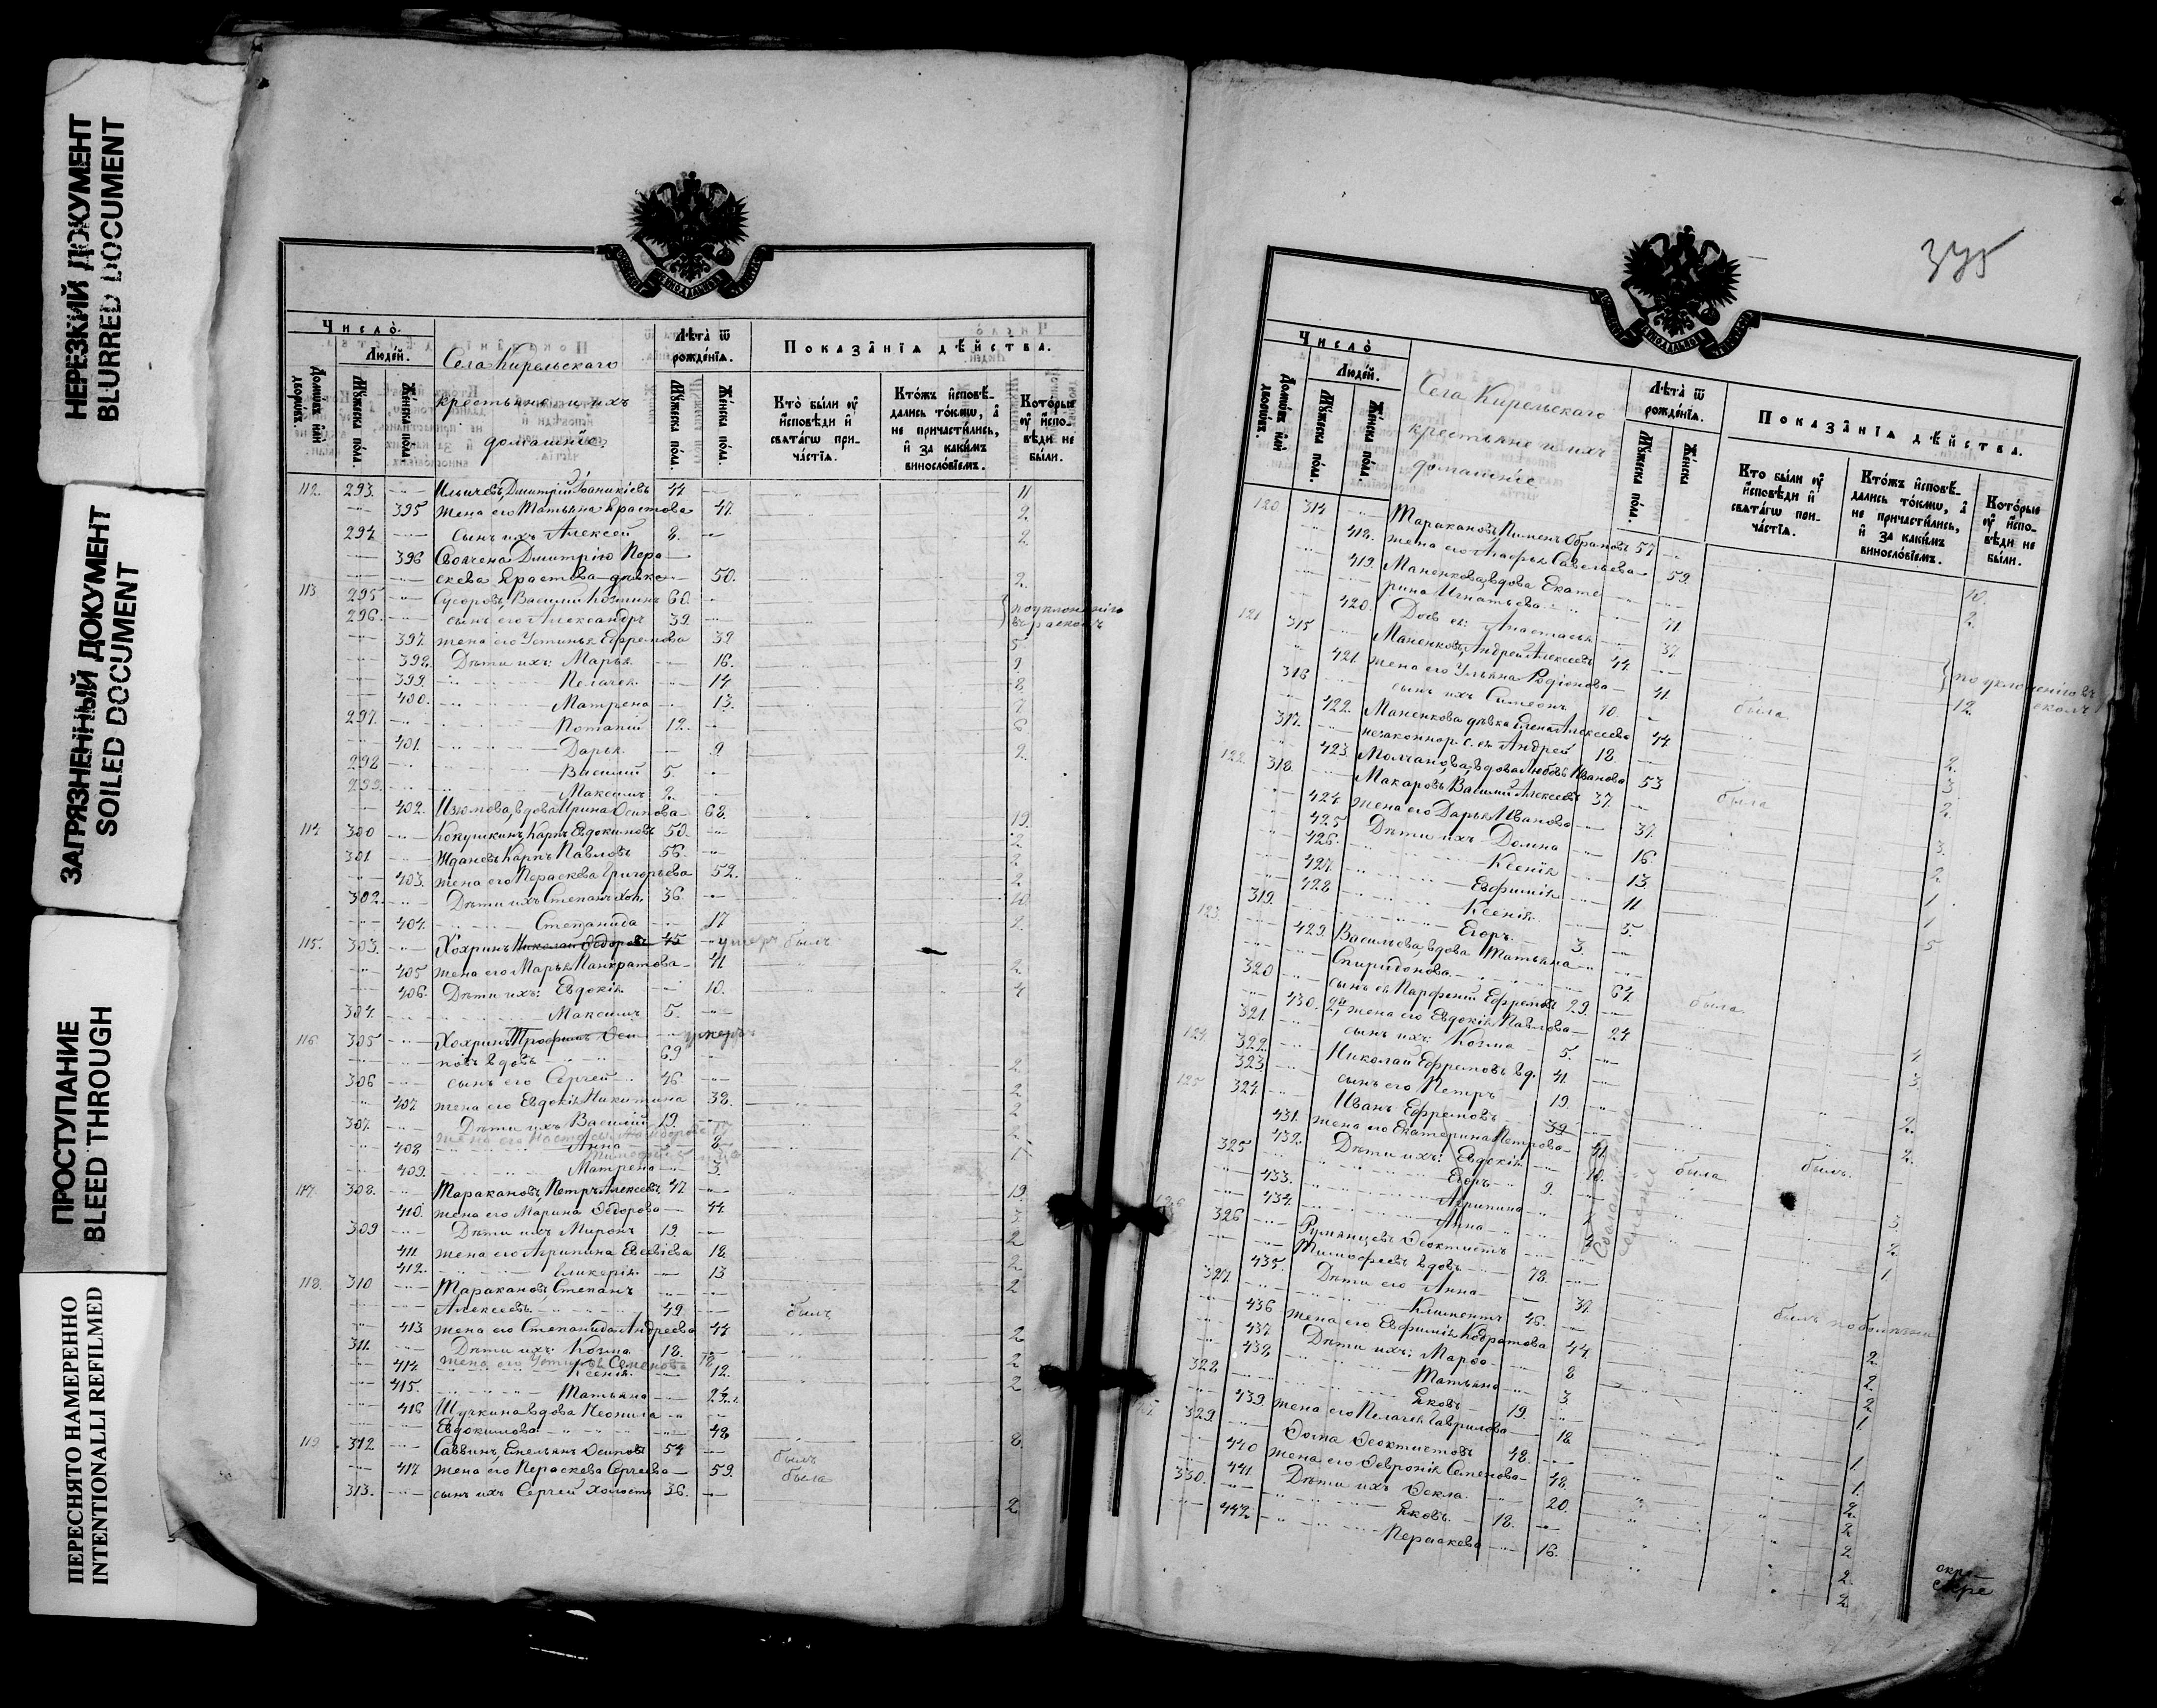 НЕРЕЗКИЙ ДОКУМЕНТ
BLURRED DOCUMENT
ЗАГРЯЗНЕННЫЙ ДОКУМЕНТ
SOILED DOCUMENT
ПРОСТУПАНИЕ
BLEED THROUGH
ПЕРЕСНЯТО НАМЕРЕННО
INTENTIONALLI REFILMED
Число̀.
Людей.
Домѡвъ и҆лѝ дворѡвъ.
Мꙋ́жеска по́ла.
Же́нска по́ла.
Села Кирельскаго
крестьяне и ихъ
домашніе
Лѣ́та ѿ рожде́нїѧ.
Мꙋ́жеска по́ла.
Же́нска по́ла.
Показа̂нїѧ дѣ́йства.
Кто̀ бы́ли ᲂу҆ и҆сповѣ́ди и҆ свѧта́гѡ при-
ча́стїѧ.
Кто́жъ и҆сповѣ́-
дались то́кмѡ, а҆
не причасти́лись,
и҆ за каки́мъ
винословїемъ.
Кото́рые
ᲂу҆ и҆спо-
вѣ́ди не
бы́ли.
112. 293. Ильичевъ, Дмитрій Іоаникіевъ 44 11
395 жена его Татьяна Ерастова 47. 2.
294 сынъ ихъ Алексей 8. 2
396 Своячена Дмитрію Пера-
скева Ерастова девка 50. 2.
113 295 Сусоровъ, Василій Козминъ 60.
296. сынъ его Александръ 39 по уклоненію
въ расколъ
397. жена его Устинья Ефремова 39 5
398. Дѣти ихъ: Марья 16. 9
399. Пелагея 14 8
400. Матрена 13. 7
297. Потапій 12. 6
401. Дарья 9 2.
298 Василій 5.
299. Максимъ 2.
402. Изюмова, вдова Ирина Осипова 68. 19.
114 300 Кокушкинъ, Карпъ Евдокимовъ 50. 2
301 Ждановъ Карпъ Павловъ 56. 2
403. жена его Пераскева Григорьева 52. 2
302. Дѣти ихъ Степанъ хол. 36. 10
404. Степанида 17 2.
115. 303. Хохринъ Николай Ѳедоровъ 45 умеръ былъ
405 жена его Марья Панкратова 41 2
406. Дѣти ихъ: Евдокія 10. 4
304. Максимъ 5.
116 305 Хохринъ Трофимъ Оси- умеръ
повъ вдовъ 69 2
306 сынъ его Сергей 46. 2
407 жена его Евдокія Никитина 38. 2
307. Дѣти ихъ Василій 19. 2
408 Анна 8 1
409. Матрена 3.
117. 308. Таракановъ, Петръ Алексеевъ 47. 19.
410. жена его Марина Ѳедорова 44 3
309 Дѣти ихъ Миронъ 19. 2
411. жена его Агрипина Евсевіева 18 2
412. Гликерія 13 2
118. 310 Таракановъ Степанъ
Алексеевъ 49. былъ
413 жена его Степанида Андреева 47 2
311. Дѣти ихъ: Козма 18. 2
жена его Устинья Семенова 18
414. Ксенія 12. 2
415. Татьяна 2½
416 Щучкина вдова Неонила
Евдокимова 48 8
119. 312 Саввинъ, Емельянъ Осиповъ 54 былъ
417 жена его Пераскева Сергеева 59. была
313. сынъ ихъ Сергей холостъ 36. 2
375
Число̀
Людей.
Домѡвъ и҆лѝ дворѡвъ.
Мꙋ́жеска по́ла.
Же́нска по́ла.
Села Кирельскаго
крестьяне и ихъ
домашніе
Лѣ́та ѿ рожде́нїѧ.
Мꙋ́жеска по́ла.
Же́нска
Показа̂нїѧ дѣ́йства.
Кто̀ бы́ли ᲂу҆
и҆сповѣ́ди и҆
свѧта́гѡ при-
ча́стїѧ.
Кто́жъ и҆сповѣ́-
дались то́кмѡ, а҆
не причасти́лись,
и҆ за каки́мъ
винословїемъ.
Кото́рые
ᲂу҆ и҆спо-
вѣ́ди не
бы́ли.
120 314 Таракановъ, Пименъ 57 10.
418. жена его Агафья Савельева 59. 2.
419. Маненкова, вдова Екате-
рина Игнатьева 71.
420. Дочь ея: Анастасья 37. по уклоненію въ
121 315 Маненковъ, Андрей Алексеевъ 44. 12.
421. жена его Ульяна Родіонова 41. была.
316 сынъ ихъ Симеонъ 10.
422. Маненкова девка Елена Алексеева 44 2.
317. незаконнор. с. ея Андрей 18 3
423. Молчанова, вдова Любовь Иванова 53 была 2.
122. 318. Макаровъ, Василій Алексеевъ 37.
424. жена его Дарья Иванова 37. 3.
425 Дѣти ихъ Домна 16. 2
426. Ксенія 13. 1
427. Евфимія 11 1
428 Ксенія 5. 5
319. Егоръ 3.
123. 429. Васильева, вдова Татьяна
Спиридонова 64. была.
320 сынъ ея Парфеній Ефремовъ 29.
430. жена его Евдокія Павлова 24
321 сынъ ихъ: Козма 5. 3.
124 322. Николай Ефремовъ вд. 41.
323. сынъ его Петръ 19. 2.
125 324. Иванъ Ефремовъ 39 2.
431. жена его Екатерина Петрова 41. была былъ.
432. Дѣти ихъ: Евдокія 10.
325 Егоръ 9. 3.
433. Агрипина 2.
434. Анна 1
126 326 Румянцевъ Ѳеоктистъ
Тимофеевъ вдовъ 78.
435. Дѣти его Анна 37. былъ по болезни
327. Климентъ 46.
436 жена его Евфимія Кодратова 44. 2.
437 Дѣти ихъ: Марфа 8 2
438 Татьяна 3. 2
328 Яковъ 19. 1.
439. жена его Пелагея Гаврилова 18
127. 329. Ѳома Ѳеоктистовъ 48. 1
440 жена его Ѳевронія Семенова 48. 1.
441 Дѣти ихъ Ѳекла 20. 2.
330. Яковъ 18. 2
442. Пераскева 16. 2.